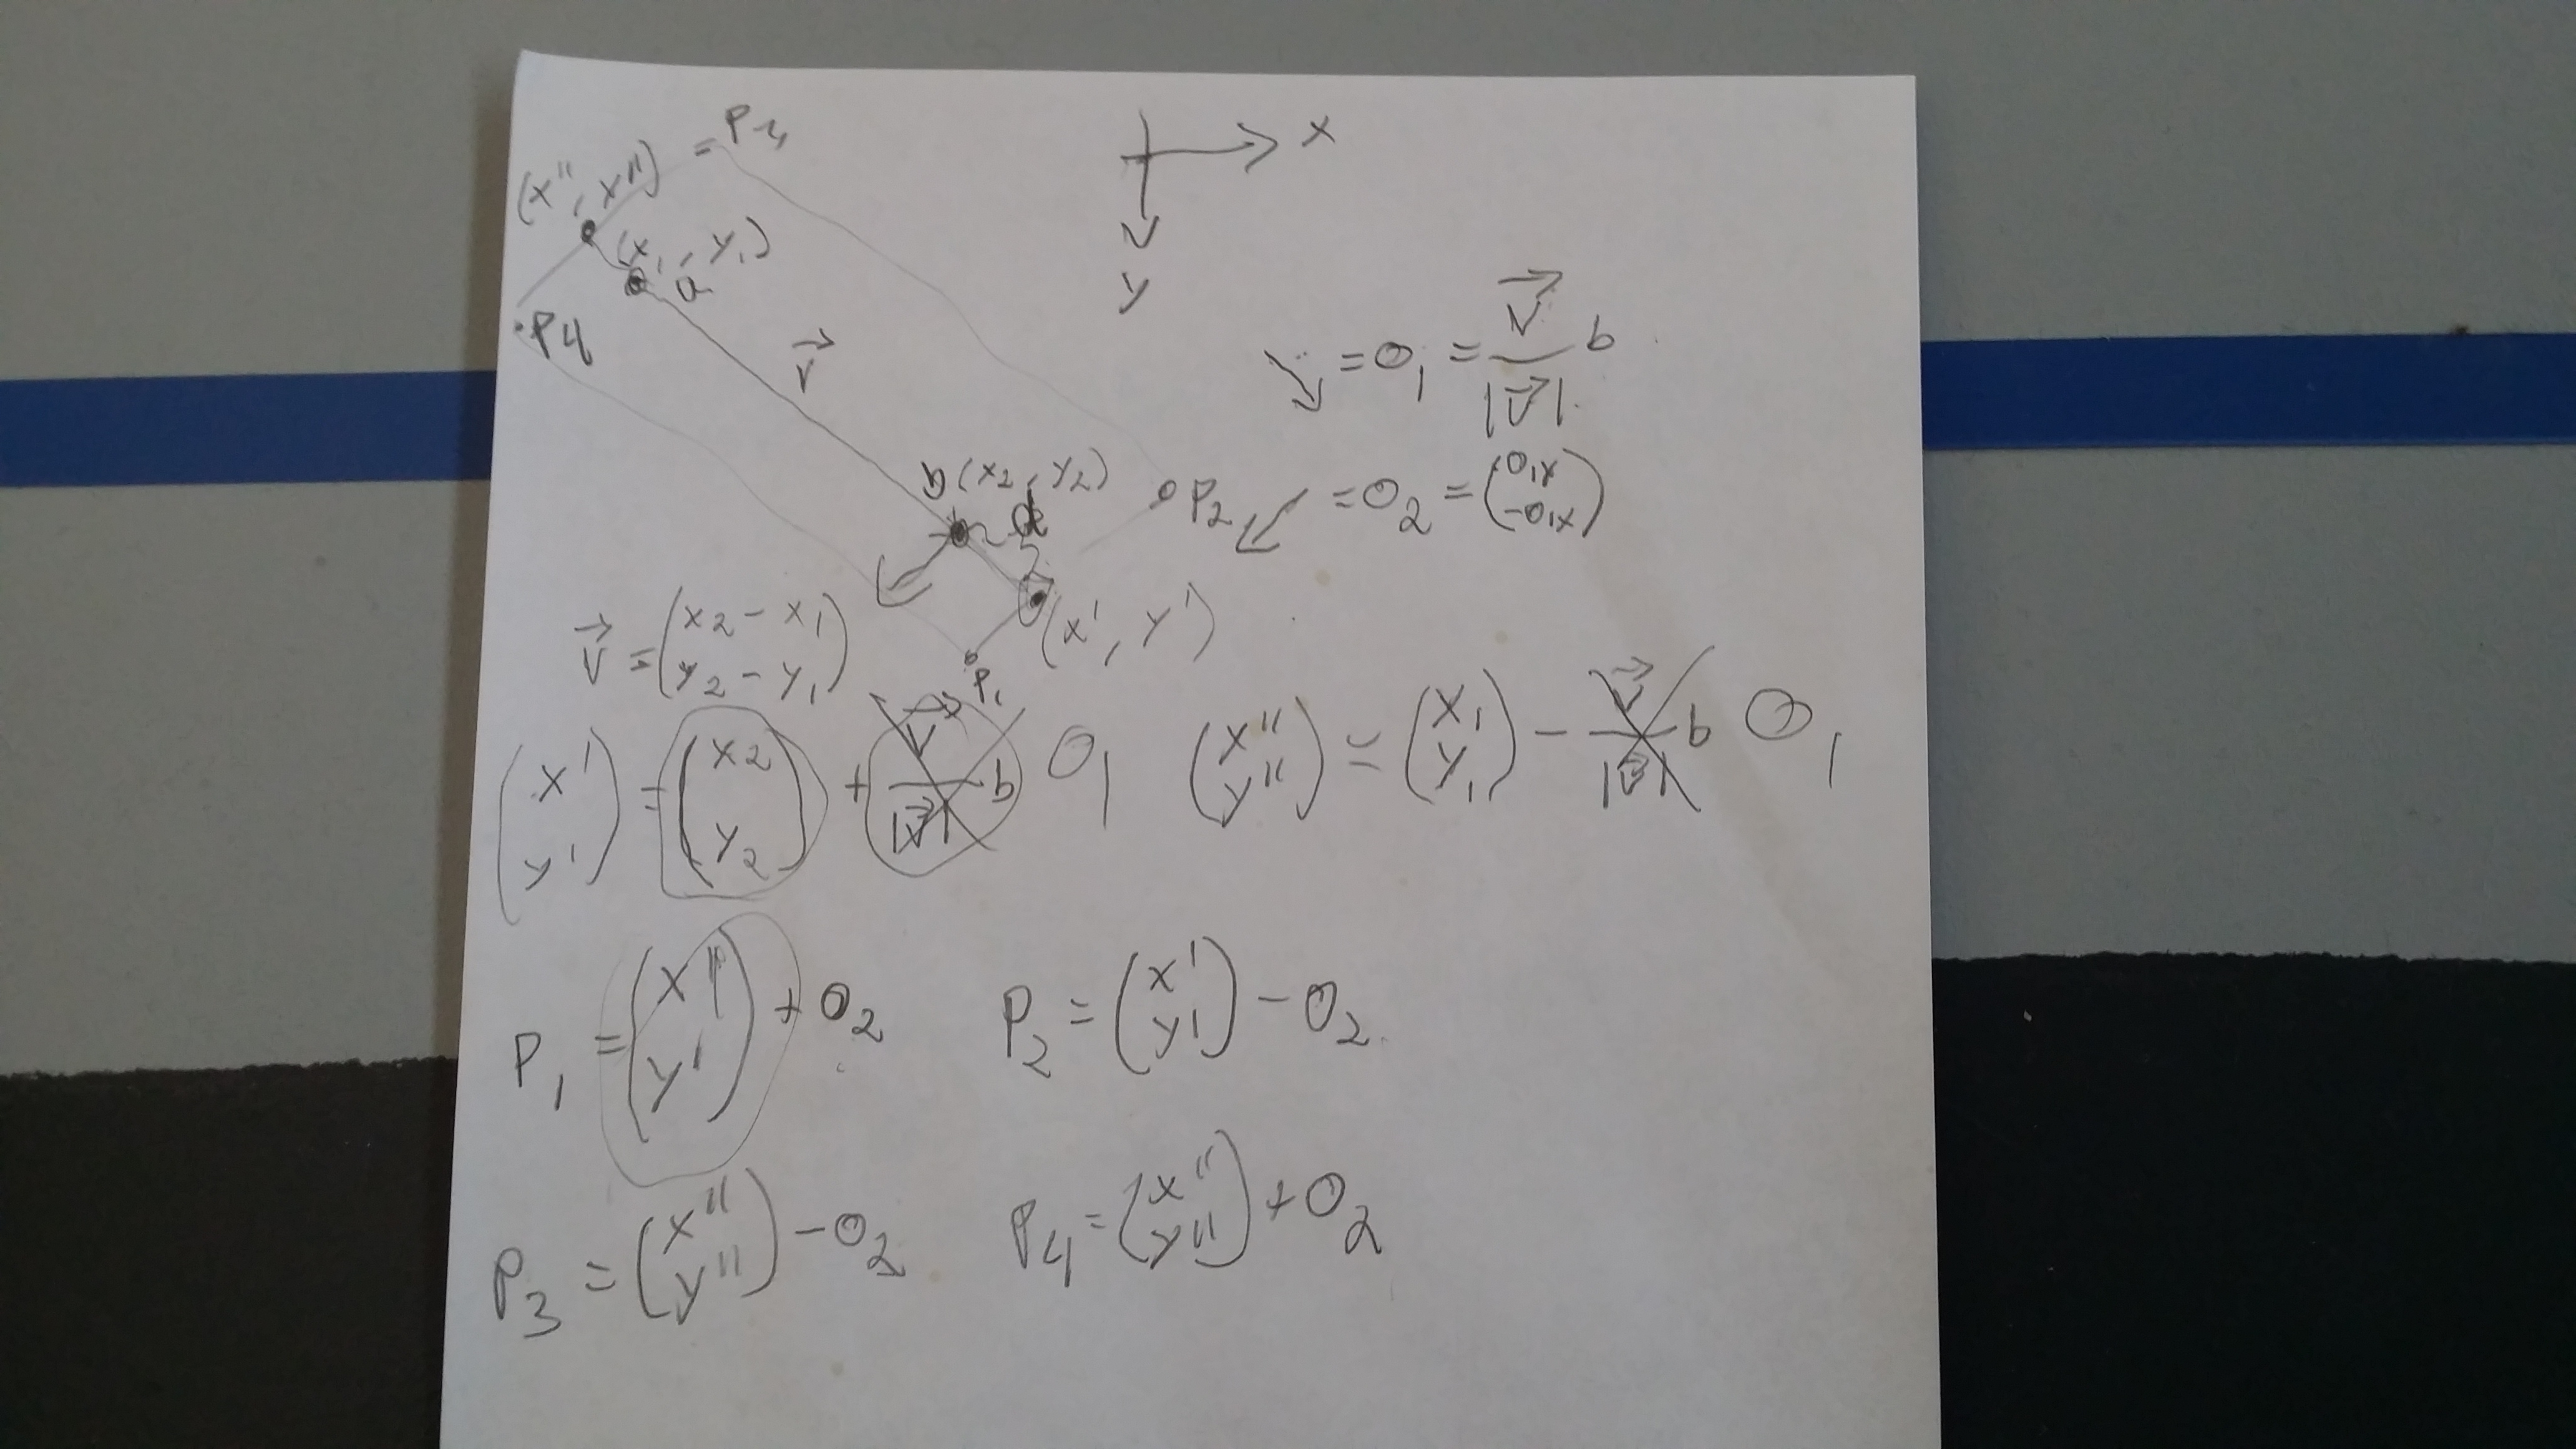 = P3
x
(x'', x'')
(x1, y1)
a
y
P4
v⃗
= O1 = v⃗ / |v⃗| b
b (x2, y2)
P2
= O2 = (O1y -O1x)
(x', y')
v⃗ = (x2 - x1 y2 - y1)
P1
(x' y') = (x2 y2) + v⃗ / |v⃗| b O1
(x'' y'') = (x1 y1) - v⃗ / |v⃗| b O1
P1 = (x' y') + O2
P2 = (x' y') - O2
P3 = (x'' y'') - O2
P4 = (x'' y'') + O2